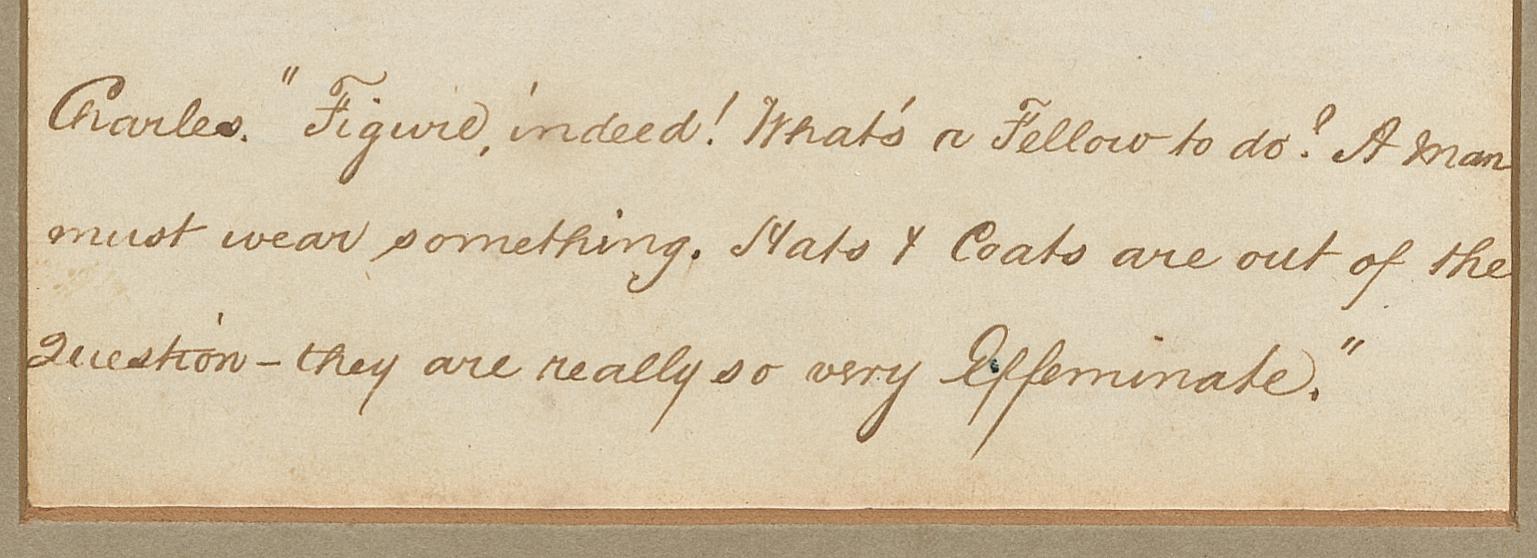 Charles. "Figure, indeed! What's a Fellow to do? A Man
must wear something. Hats & Coats are out of the
Question – they are really so very Effeminate."